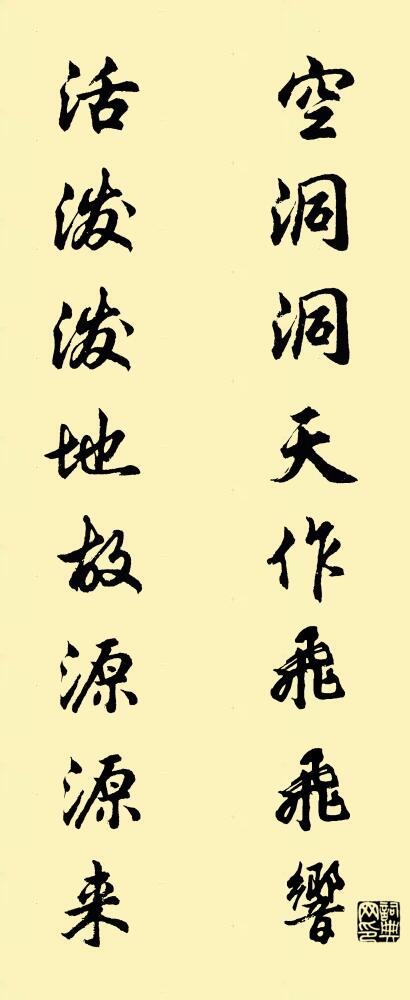 空洞洞天作飛飛響
活泼泼地故源源来
詞典网印